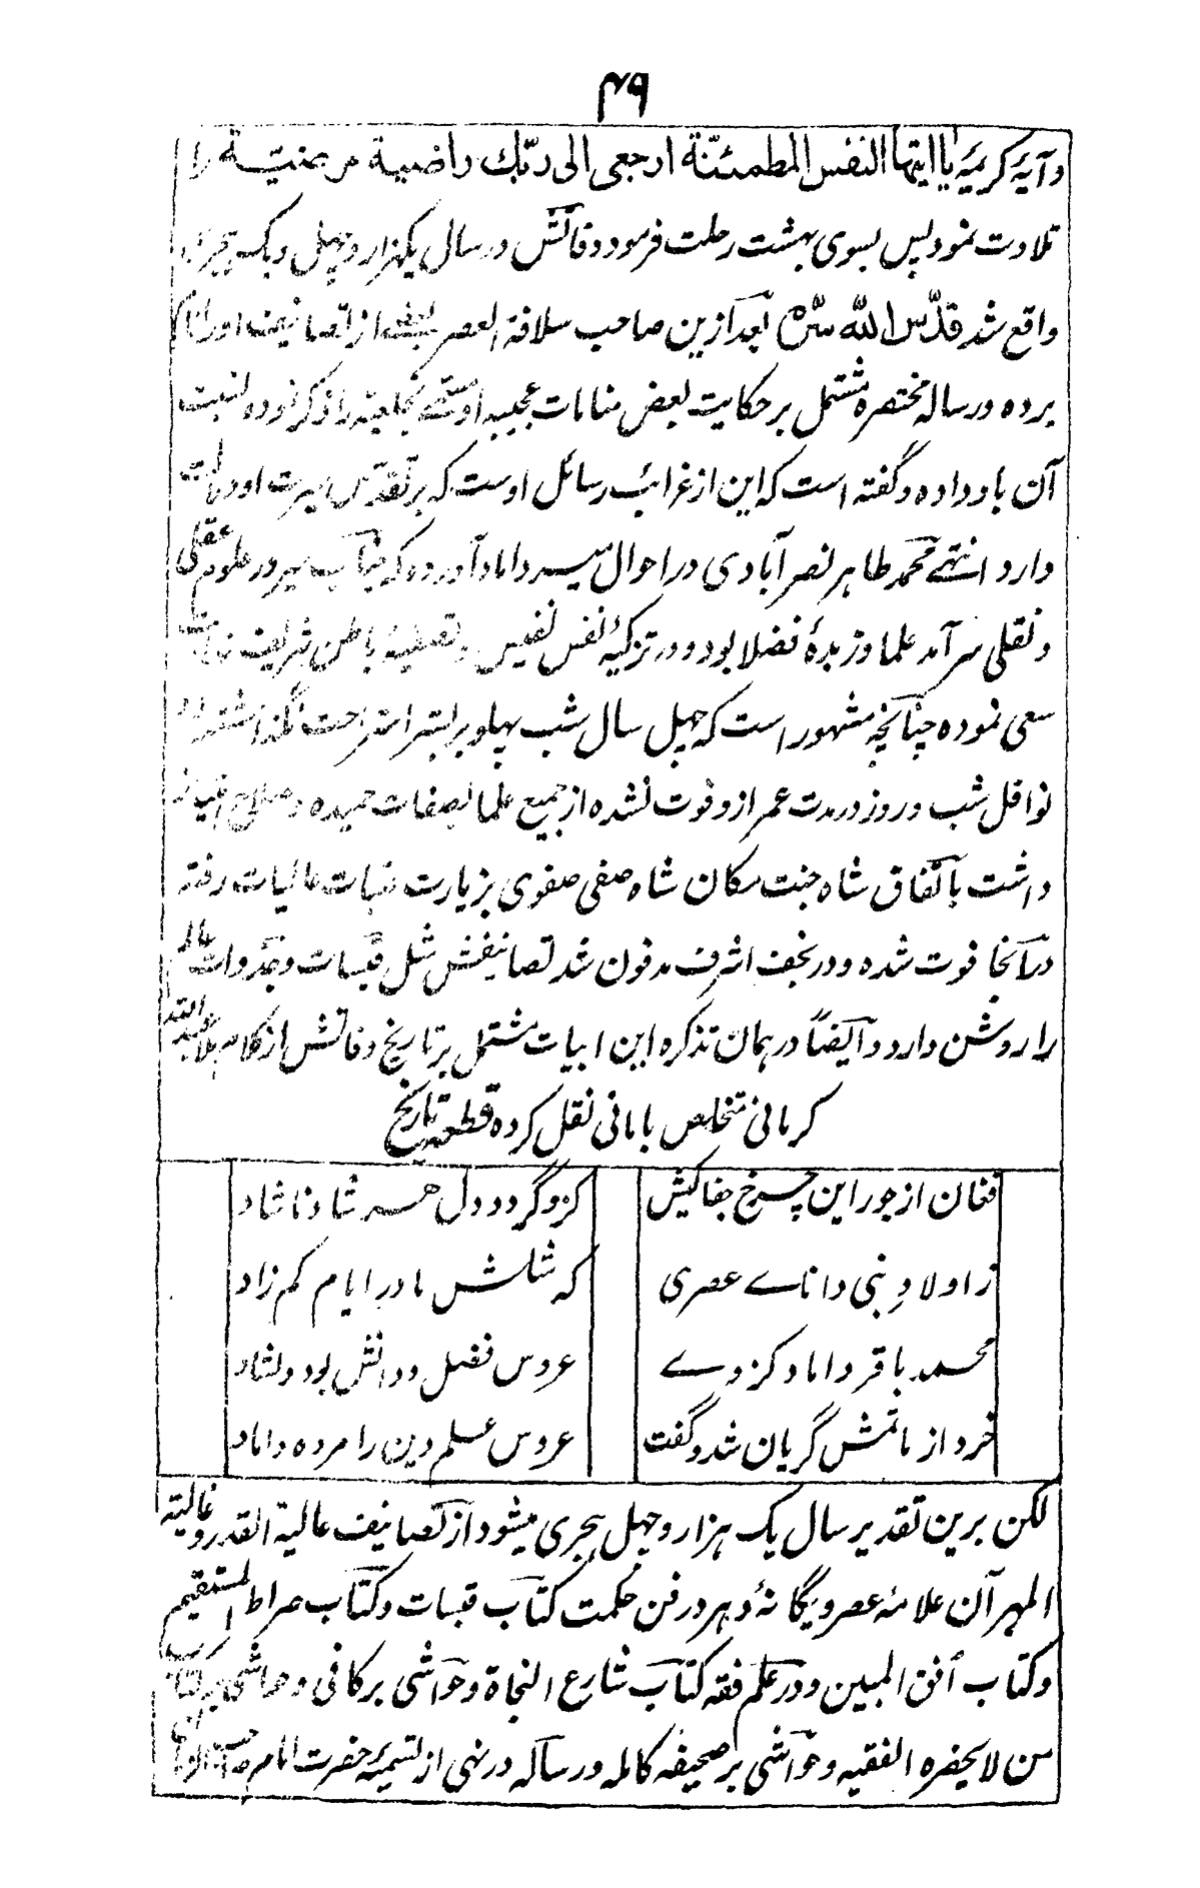 ۴۹
و آیۀ کریمۀ یا ایتها النفس المطمئنّة ارجعی الی ربّک راضیة مرضیّة را
تلاوت نمود پس بسوی بهشت رحلت فرمود وفاتش در سال یکهزار و چهل و یک هجری
واقع شد قدّس اللّه سرّه بعد ازین صاحب سلافة العصر بعضے از تصانیف او را نام
برده و رساله مختصره مشتمل بر حکایت بعض منامات عجیبه او مسمّے بخلعیه را ذکر نموده نسبت
آن باو داده و گفته است که این از غرائب رسائل اوست که بر تقدّس سیرت او دلالت
دارد انتهے محمد طاهر نصرآبادی در احوال میر داماد آورده که جناب میر در علوم عقلی
و نقلی سرآمد علما و زبدۀ فضلا بود و در تزکیۀ نفس نفیس و تصفیۀ باطن شریف نهایت
سعی نموده چنانچه مشهور است که چهل سال شب پهلو بر بستر استراحت نگذاشته و
نوافل شب و روز در مدت عمر ازو فوت نشده از جمیع علما بصفات حمیده و صلاح
داشت باتفاق شاه جنت مکان شاه صفی صفوی بزیارت عتبات عالیات رفته
در آنجا فوت شده و در نجف اشرف مدفون شد تصانیفش مثل قبسات و جذوات عالم
را روشن دارد و ایضاً در همان تذکره این ابیات مشتمل بر تاریخ وفاتش از کلام ملا عبد الله
کرمانی متخلص بامانی نقل کرده قطعه تاریخ
فغان از جور این چرخ جفاکیش کزو گردد دل هر شاد ناشاد
ز اولادِ نبی داناے عصری که مثلش مادر ایام کم زاد
محمد باقر داماد کز وے عروس فضل و دانش بود دلشاد
خرد از ماتمش گریان شد و گفت عروس علم دین را مرده داماد
لکن برین تقدیر سال یک هزار و چهل هجری میشود از تصانیف عالیة القدر و غالیة
المهر آن علامۀ عصر و یگانۀ دهر در فن حکمت کتاب قبسات و کتاب صراط المستقیم
و کتاب اُفق المبین و در علم فقه کتاب شارع النجاة و حواشی بر کافی و حواشی بر کتاب
من لا یحضره الفقیه و حواشی بر صحیفه کامله و رساله در نهی از تسمیۀ حضرت امام